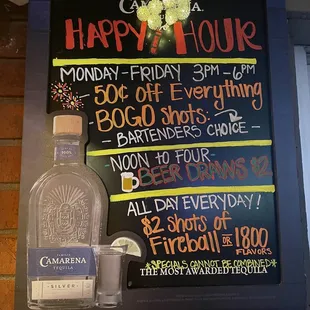 CAMARENA.
HAPPY HOUR
MONDAY-FRIDAY 3PM-6PM
- 50¢ off Everything
- BOGO Shots:
- BARTENDERS CHOICE -
NOON TO FOUR-
BEER DRAWS $2
ALL DAY EVERYDAY!
$2 Shots of
Fireball OR 1800
FLAVORS
*SPECIALS CANNOT BE COMBINED*
THE MOST AWARDED TEQUILA
CAMARENA
TEQUILA
SILVER